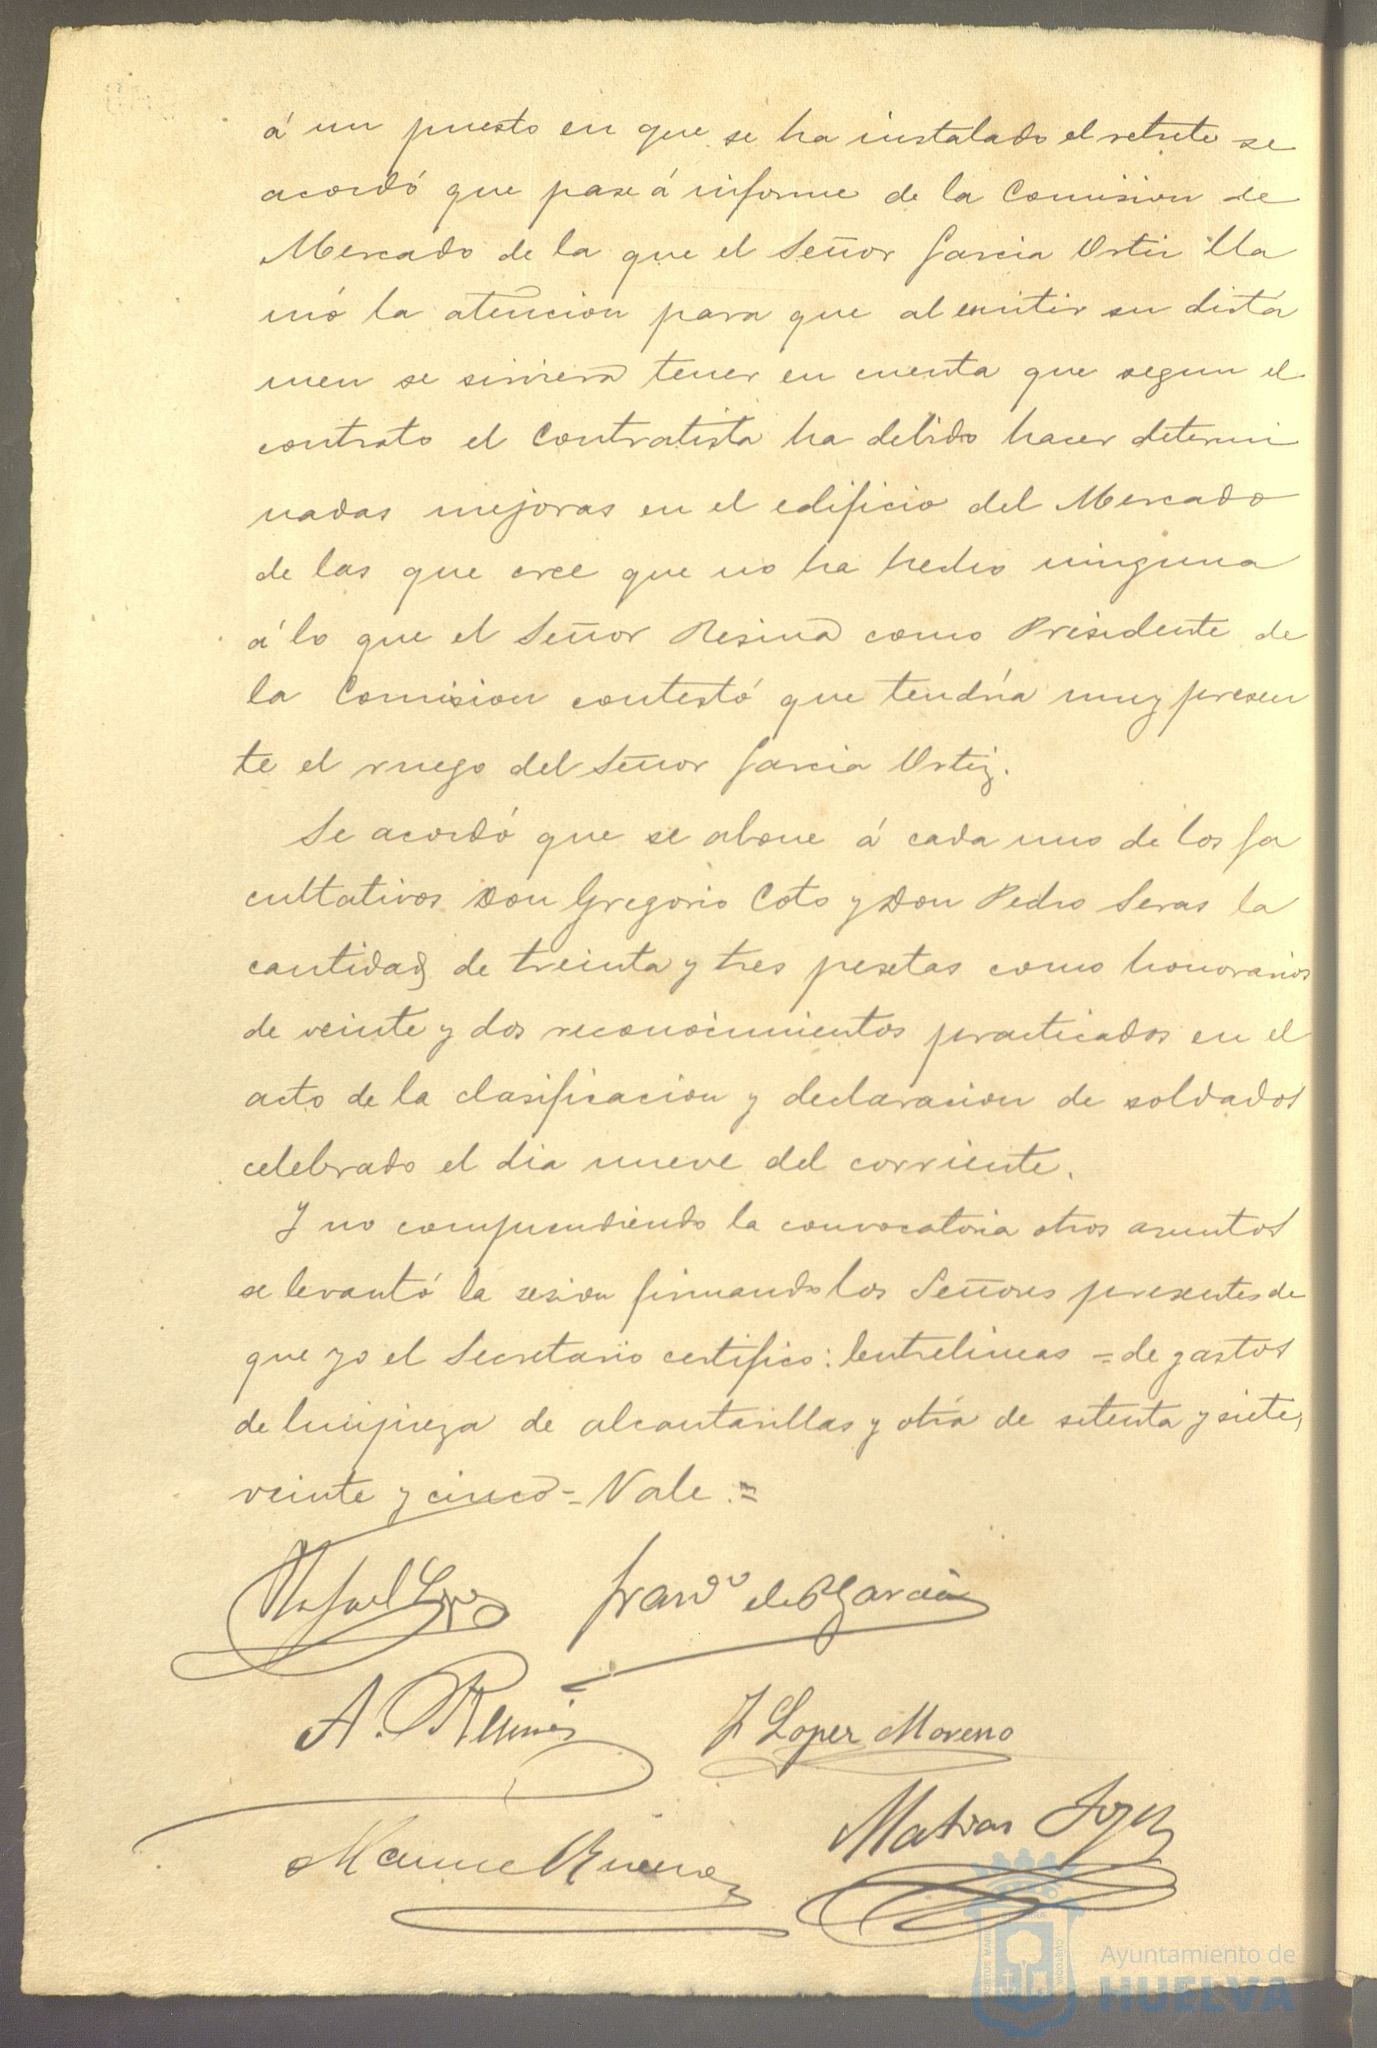 á un puesto en que se ha instalado el retrete se
acordó que pase á informe de la Comision de
Mercado de la que el Señor Garcia Ortiz lla
mó la atencion para que al emitir su dictá
men se sirviera tener en cuenta que segun el
contrato el Contratista ha debido hacer determi
nadas mejoras en el edificio del Mercado
de las que cree que no ha hecho ninguna
á lo que el Señor Resina como Presidente de
la Comision contestó que tendría muy presen
te el ruego del Señor Garcia Ortiz.
Se acordó que se abone á cada uno de los fa
cultativos Don Gregorio Coto y Don Pedro Seras la
cantidad de treinta y tres pesetas como honorarios
de veinte y dos reconocimientos practicados en el
acto de la clasificacion y declaracion de soldados
celebrado el dia nueve del corriente.
Y no comprendiendo la convocatoria otros asuntos
se levantó la sesion firmando los Señores presentes de
que yo el Secretario certifico: Entrelineas = de gastos
de limpieza de alcantarillas y otra de setenta y siete,
veinte y cinco = Vale. =
Rafael Lopez Franco de P Garcia
A. J Lopez Moreno
Matias
Ayuntamiento de
HUELVA